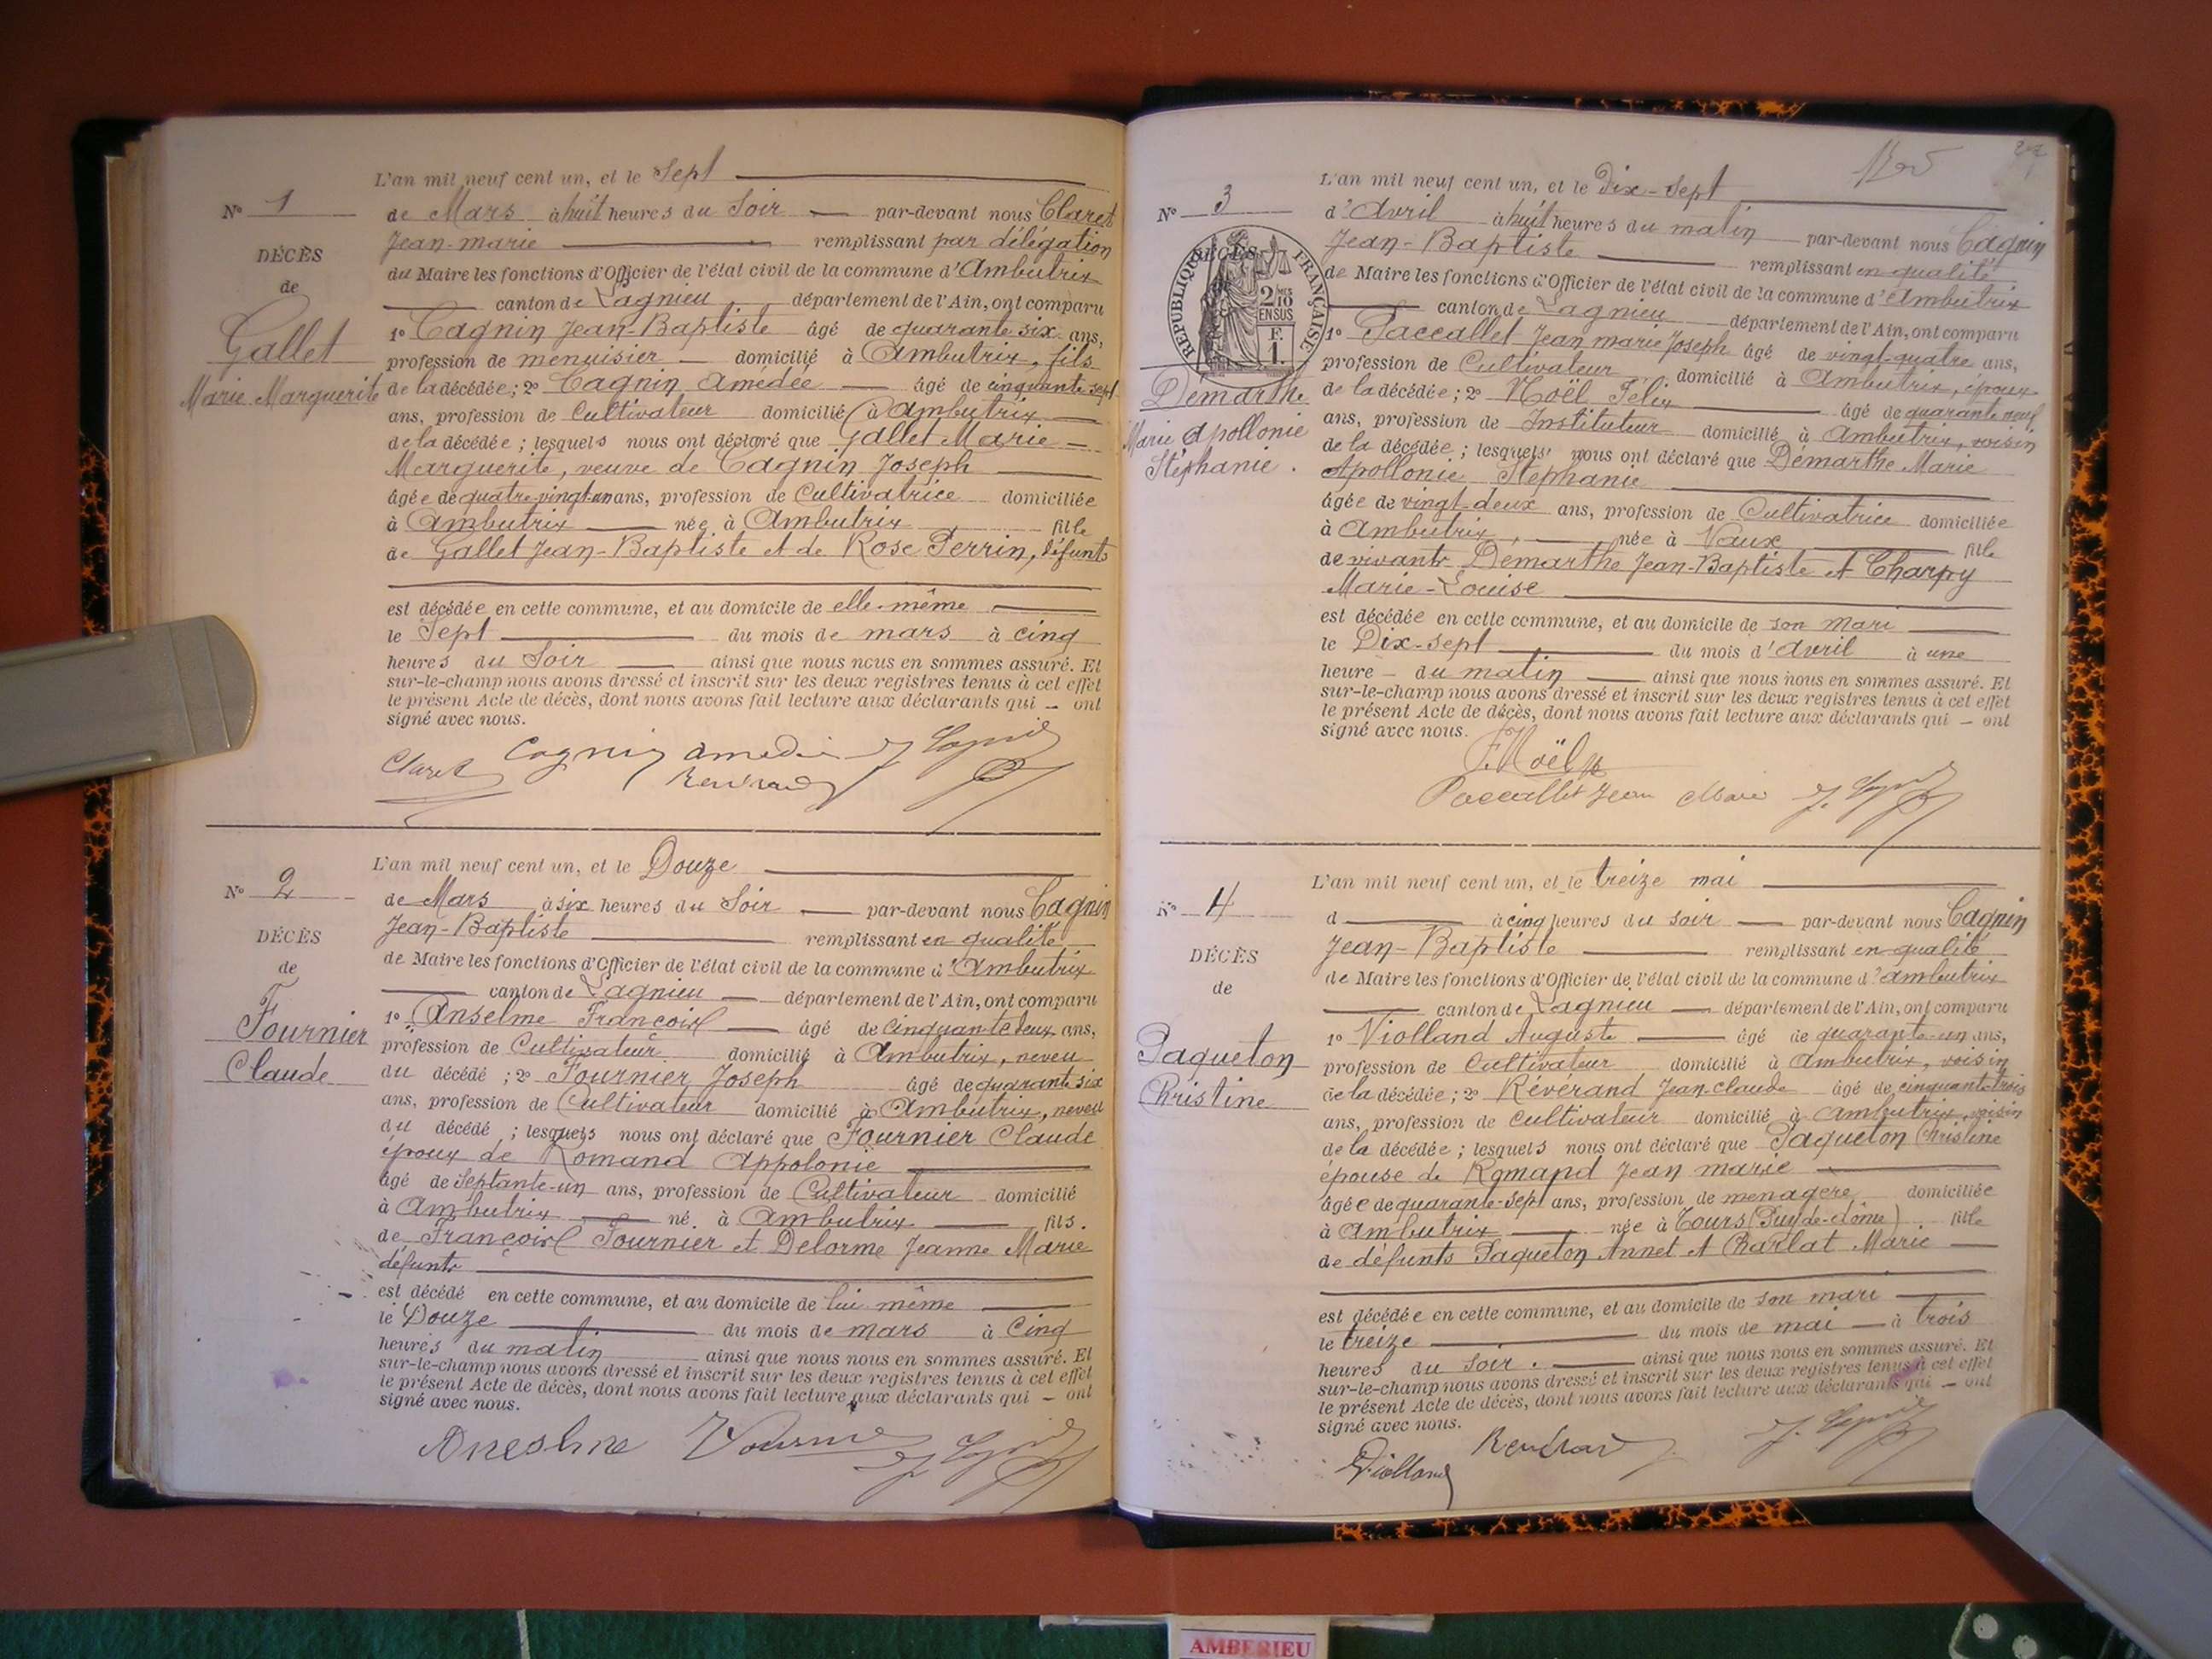 L'an mil neuf cent un, et le Sept
N° 1
de Mars à huit heures du Soir par-devant nous Claret
Jean-marie remplissant par délégation
DÉCÈS
du Maire les fonctions d'Officier de l'état civil de la commune d'Ambutrix
de
canton de Lagnieu département de l'Ain, ont comparu
Gallet
Marie Marguerite
1° Cagnin Jean-Baptiste âgé de quarante six ans,
profession de menuisier domicilié à Ambutrix, fils
de la décédée; 2° Cagnin Amédée âgé de cinquante sept
ans, profession de Cultivateur domicilié à Ambutrix
de la décédée; lesquels nous ont déclaré que Gallet Marie-
Marguerite, veuve de Cagnin Joseph
âgée de quatre-vingt-un ans, profession de Cultivatrice domiciliée
à Ambutrix née à Ambutrix fille
de Gallet Jean-Baptiste et de Rose Perrin, défunts
est décédée en cette commune, et au domicile de elle-même
le Sept du mois de mars à cinq
heures du Soir ainsi que nous nous en sommes assuré. Et
sur-le-champ nous avons dressé et inscrit sur les deux registres tenus à cet effet
le présent Acte de décès, dont nous avons fait lecture aux déclarants qui - ont
signé avec nous.
Claret Cagnin Amedée J Cagnin
L'an mil neuf cent un, et le Douze
N° 2
de Mars à six heures du Soir par-devant nous Cagnin
Jean-Baptiste remplissant en qualité
DÉCÈS
de Maire les fonctions d'Officier de l'état civil de la commune d'Ambutrix
de
canton de Lagnieu département de l'Ain, ont comparu
Fournier
Claude
1° Anselme François âgé de Cinquante deux ans,
profession de Cultivateur domicilié à Ambutrix, neveu
du décédé; 2° Fournier Joseph âgé de quarante six
ans, profession de Cultivateur domicilié à Ambutrix, neveu
du décédé; lesquels nous ont déclaré que Fournier Claude
époux de Romand Appolonie
âgé de Septante-un ans, profession de Cultivateur domicilié
à Ambutrix né à Ambutrix fils.
de François Fournier et Delorme Jeanne Marie
défunts
est décédé en cette commune, et au domicile de lui-même
le Douze du mois de mars à Cinq
heures du matin ainsi que nous nous en sommes assuré. Et
sur-le-champ nous avons dressé et inscrit sur les deux registres tenus à cet effet
le présent Acte de décès, dont nous avons fait lecture aux déclarants qui - ont
signé avec nous.
Aneslme Fournier J Cagnin
L'an mil neuf cent un, et le Dix-Sept
N° 3
d'Avril à huit heures du matin par-devant nous Cagnin
Jean-Baptiste remplissant en qualité
DÉCÈS
RÉPUBLIQUE FRANÇAISE
2/10 EN SUS
F. 1
de Maire les fonctions d'Officier de l'état civil de la commune d'Ambutrix
canton de Lagnieu département de l'Ain, ont comparu
Demarthe
Marie Apollonie
Stéphanie.
1° Paccallet Jean marie Joseph âgé de vingt-quatre ans,
profession de Cultivateur domicilié à Ambutrix, époux
de la décédée; 2° Noël Félix âgé de quarante neuf
ans, profession de Instituteur domicilié à Ambutrix, voisin
de la décédée; lesquels nous ont déclaré que Demarthe Marie
Apollonie Stéphanie
âgée de vingt-deux ans, profession de Cultivatrice domiciliée
à Ambutrix, née à Vaux fille
de vivants Demarthe Jean-Baptiste et Charpy
Marie-Louise
est décédée en cette commune, et au domicile de son mari
le Dix-sept du mois d'Avril à une
heure du matin ainsi que nous nous en sommes assuré. Et
sur-le-champ nous avons dressé et inscrit sur les deux registres tenus à cet effet
le présent Acte de décès, dont nous avons fait lecture aux déclarants qui - ont
signé avec nous.
F. Noël
Paccallet Jean Marie J. Cagnin
L'an mil neuf cent un, et le treize mai
N° 4
d à cinq heures du soir par-devant nous Cagnin
Jean-Baptiste remplissant en qualité
DÉCÈS
de Maire les fonctions d'Officier de l'état civil de la commune d'Ambutrix
de
canton de Lagnieu département de l'Ain, ont comparu
Paqueton
Christine
1° Violland Auguste âgé de quarante-un ans,
profession de Cultivateur domicilié à Ambutrix, voisin
de la décédée; 2° Révérand Jean claude âgé de cinquante-trois
ans, profession de Cultivateur domicilié à Ambutrix, voisin
de la décédée; lesquels nous ont déclaré que Paqueton Christine
épouse de Romand Jean marie
âgée de quarante-sept ans, profession de menagère domiciliée
à Ambutrix née à Tours (Puy-de-dôme). fille
de défunts Paqueton Annet et Charlat Marie
est décédée en cette commune, et au domicile de son mari
le treize du mois de mai à trois
heures du Soir. ainsi que nous nous en sommes assuré. Et
sur-le-champ nous avons dressé et inscrit sur les deux registres tenus à cet effet
le présent Acte de décès, dont nous avons fait lecture aux déclarants qui - ont
signé avec nous.
Violland J. Cagnin
AMBERIEU